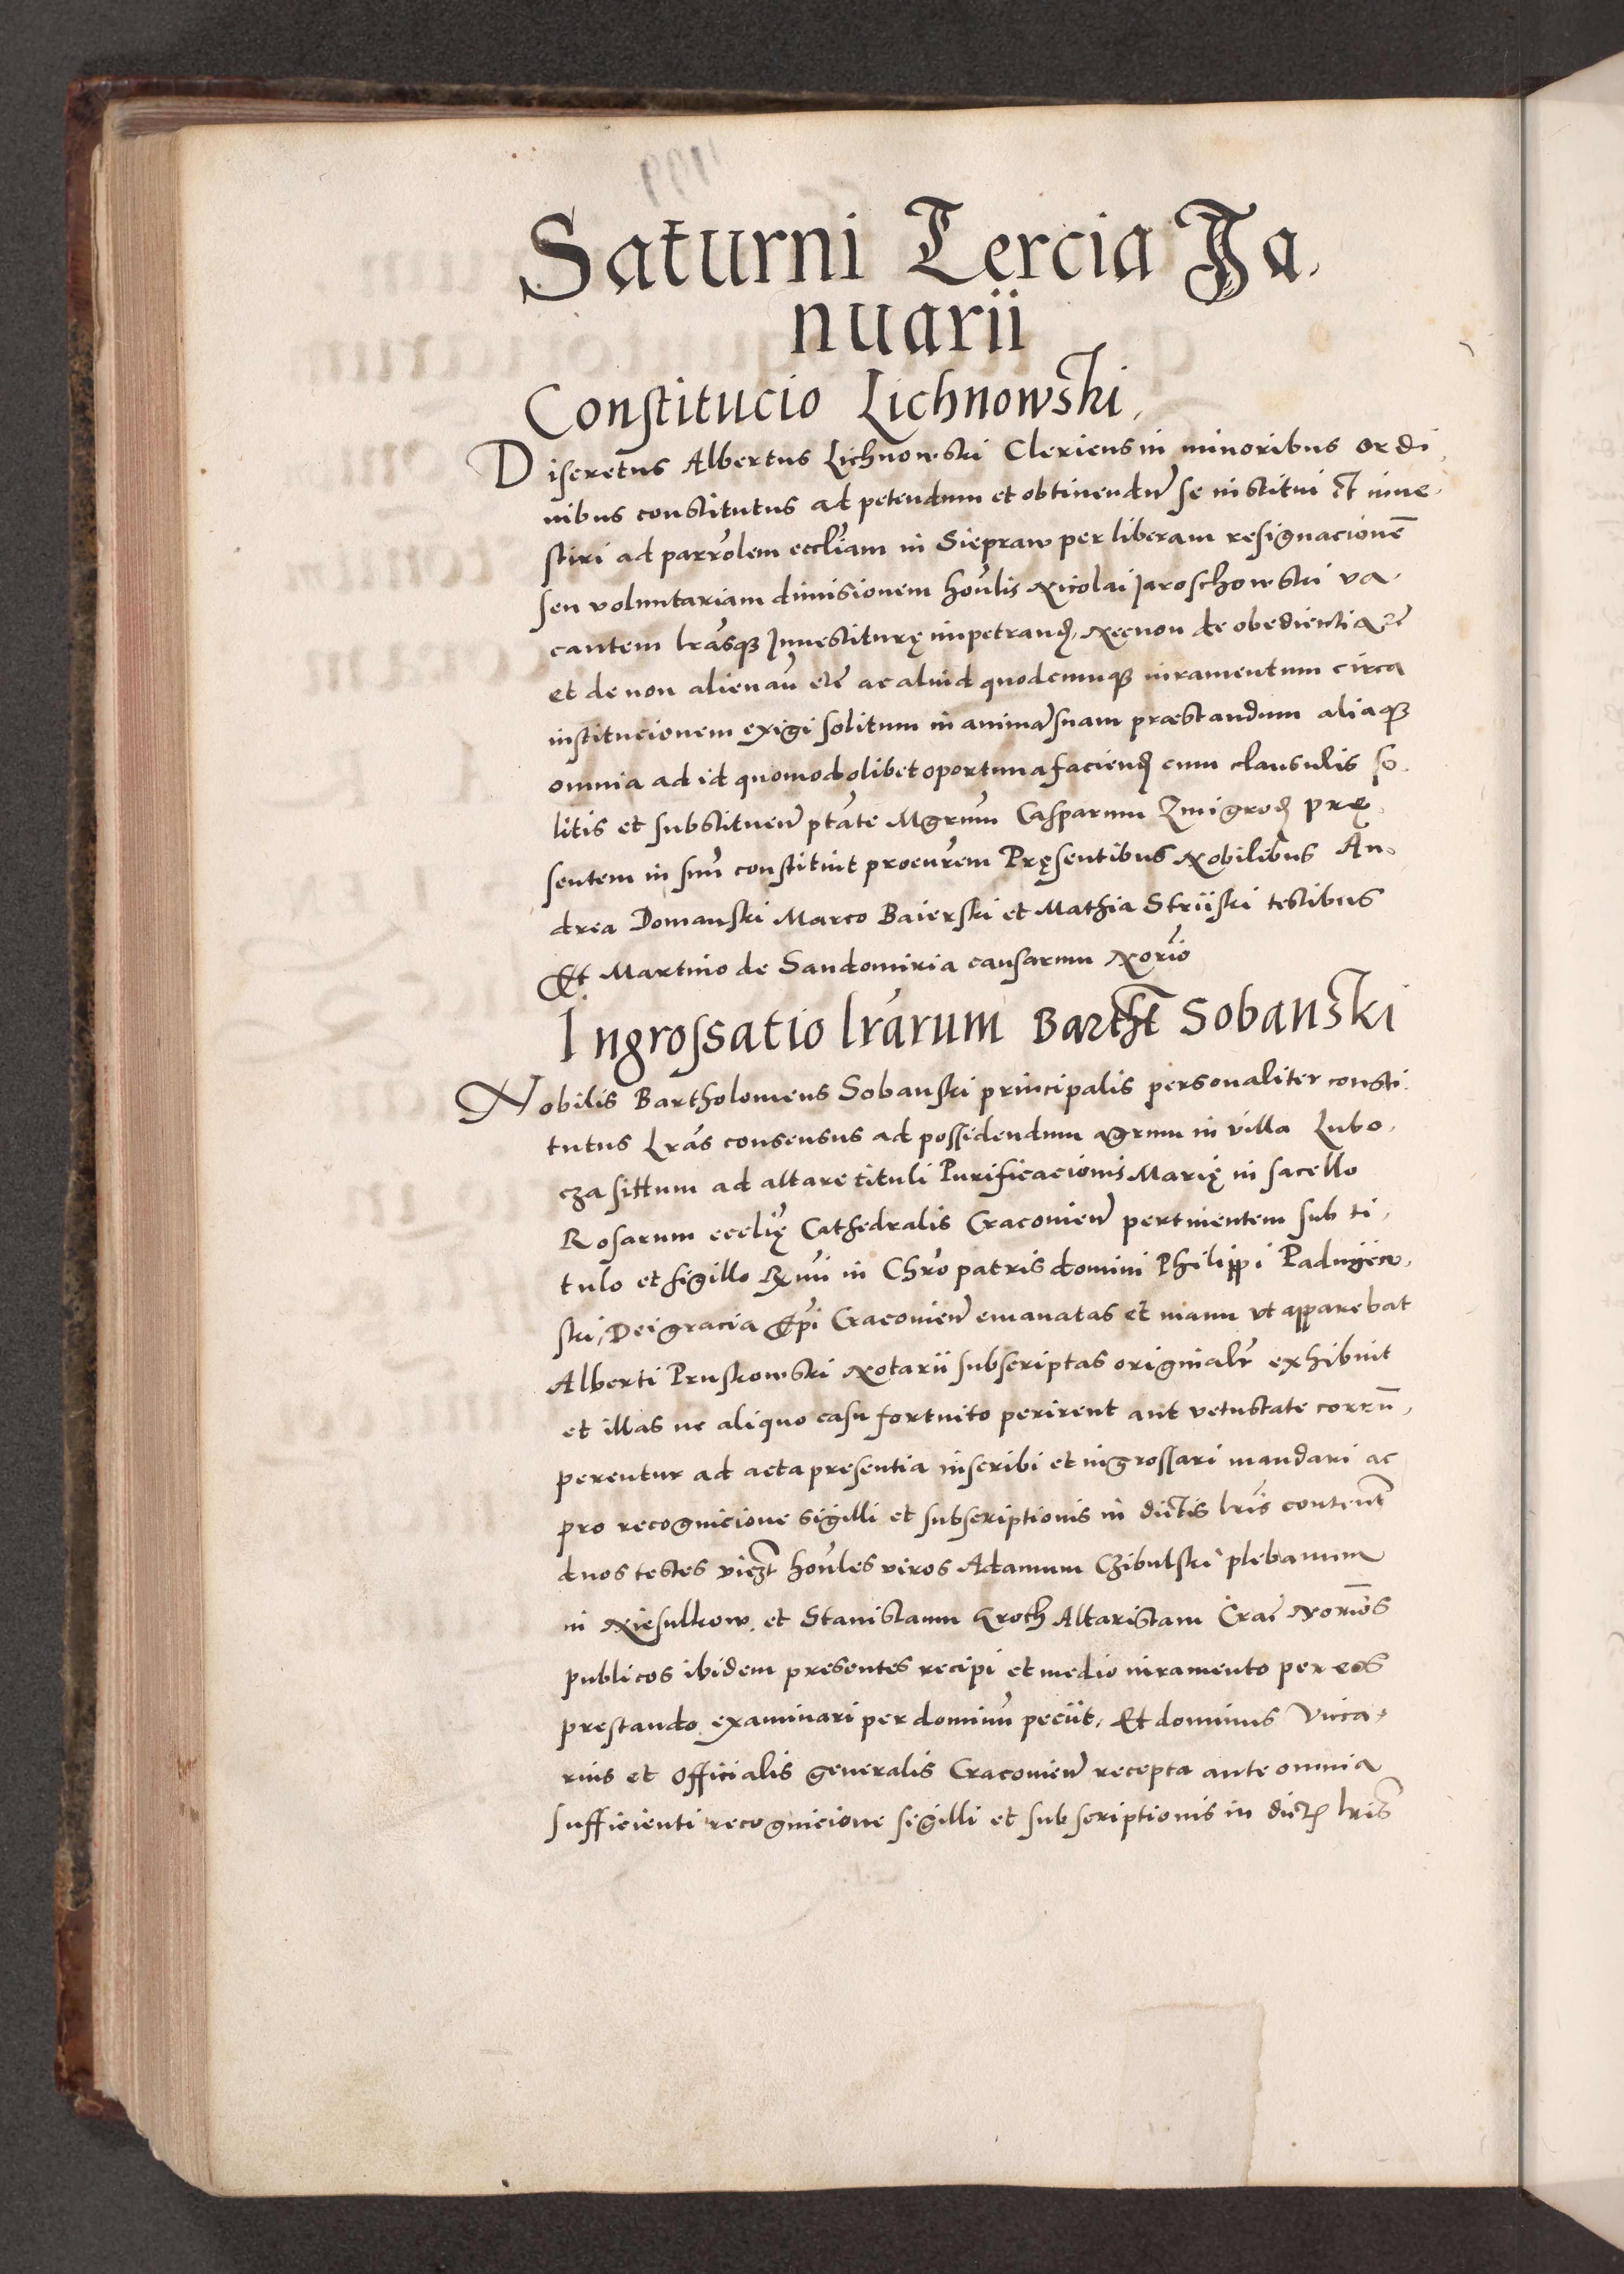 Saturni Tercia Ja,
nuarii
Constitucio Lichnowski,
Discretus Albertus Lichnowski Clericus in minoribus ordi,
nibus constitutus ad petendum et obtinendū se institui et inve,
stiri ad parrolem eccliam in Siepraw per liberam resignacionē
seu voluntariam dimisionem honlis Nicolai Jaroschowski va,
cantem lrasq Investiturę impetrand, Necnon de obedientia
et de non alienan etc ac aliud quodcunq iuramentum circa
institucionem exigi solitum in animā suam præstandum aliaq
omnia ad id quomodolibet oportuna faciend cum clausulis so,
litis et substituen ptate Mgrum Casparum Zmigrod prę,
sentem in suū constituit procurem Pręsentibus Nobilibus An,
drea Domanski Marco Baierski et Mathia Striiski testibus
Et Martino de Sandomiria causarum Norio
Ingrossatio lrarum Barth Sobanski
Nobilis Bartholomeus Sobanski principalis personaliter consti,
tutus Lras consensus ad possidendum agrum in villa Lubo,
cza sittum ad altare tituli Purificacionis Marię in sacello
Rosarum ecclię Cathedralis Cracovien pertinentem sub ti,
tulo et sigillo Rmi in Chro patris domini Philippi Padnijew,
ski, Dei gracia Epi Cracovien emanatas et manu vt apparebat
Alberti Pruskowski Notarii subscriptas originalr exhibuit
et illas ne aliquo casu fortuito perirent aut vetustate corrū,
perentur ad acta presentia inscribi et ingrossari mandari ac
pro recognicione sigilli et subscriptionis in dictis lris content
duos testes viczt honles viros Adamum Czibulski plebanum
in Niesulkow, et Stanislaum Kroth Altaristam Crac Norios
publicos ibidem presentes recipi et medio iuramento per eos
prestando examinari per dominū peciit, Et dominus Vica,
rius et Officialis generalis Cracovien recepta ante omnia
sufficienti recognicione sigilli et subscriptionis in dict lris